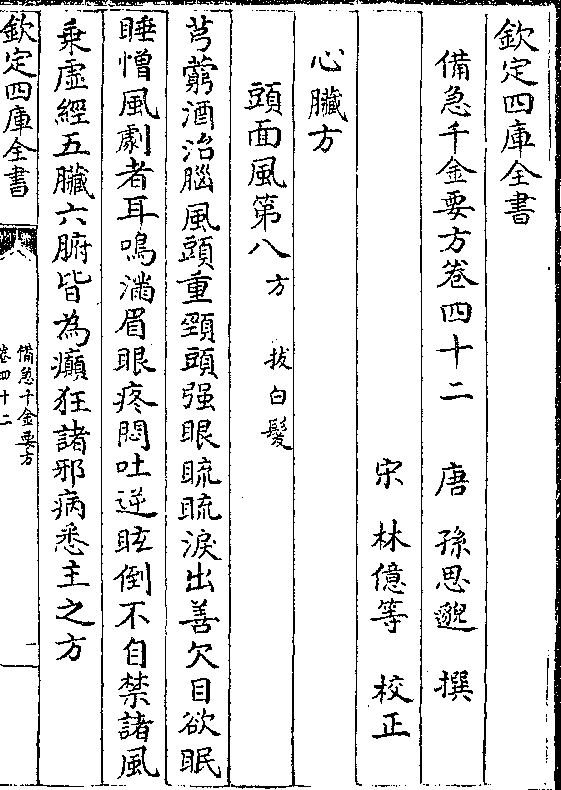 欽定四庫全書
備急千金要方卷四十二 唐 孫思邈 撰
宋 林億等 校正
心臟方
頭面風第八方 拔白髮
芎藭酒治腦風頭重頸頭强眼䀮䀮淚出善欠目欲眠
睡憎風劇者耳鳴滿眉眼疼悶吐逆眩倒不自禁諸風
乘虛經五臟六腑皆為癲狂諸邪病悉主之方
欽定四庫全書
備急千金要方
卷四十二